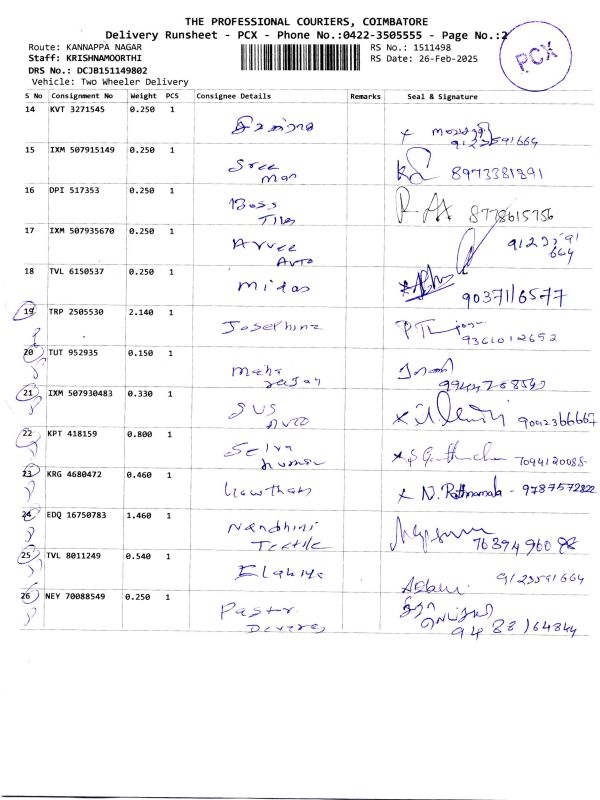 THE PROFESSIONAL COURIERS, COIMBATORE
Delivery Runsheet - PCX - Phone No.:0422-3505555 - Page No.:2
Route: KANNAPPA NAGAR
Staff: KRISHNAMOORTHI
DRS No.: DCJB151149802
Vehicle: Two Wheeler Delivery
RS No.: 1511498
RS Date: 26-Feb-2025
PCX
S No Consignment No Weight PCS Consignee Details Remarks Seal & Signature
14 KVT 3271545 0.250 1
9123591664
15 IXM 507915149 0.250 1 Sree
Man 8973381891
16 DPI 517353 0.250 1 Boss
Tiles 8778615756
17 IXM 507935670 0.250 1 Arvee
Auto 9123591
664
18 TVL 6150537 0.250 1 Midas
9037116577
19 TRP 2505530 2.140 1 Josephine
9361012652
20 TUT 952935 0.150 1 Maha
rajan
21 IXM 507930483 0.330 1 SUS
Auto 9092366667
22 KPT 418159 0.800 1 Selva
Kumar 7094120088
23 KRG 4680472 0.460 1 Gowtham x N. Rathnamala - 9787572822
24 EDQ 16750783 1.460 1 Nandhini
Textile 7639496098
25 TVL 8011249 0.540 1 Elakiya 9123591664
26 NEY 70088549 0.250 1 Pastr
Devaraj 9488164844